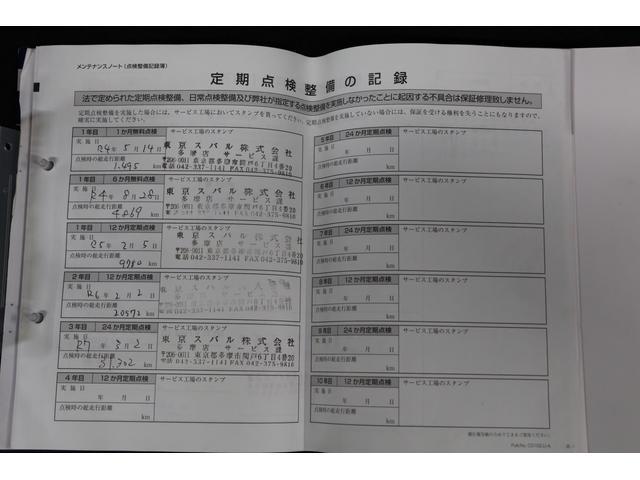 メンテナンスノート(点検整備記録簿)
定期点検整備の記録
法で定められた定期点検整備、日常点検整備及び弊社が指定する点検整備を実施しなかったことに起因する不具合は保証修理致しません。
定期点検整備を実施した場合には、サービス工場においてスタンプを貰ってください。定期点検整備を実施していない場合には、保証を受ける権利を失うことにもなりますので、
確実に実施してください。
1年目 1か月無料点検 サービス工場のスタンプ
実施日 R4年 5月 14日
点検時の総走行距離
1,495 km
東京スバル株式会社
多摩店 サービス課
〒206-0011 東京都多摩市関戸6丁目4番20
電話042-337-1141 FAX042-375-9816
1年目 6か月無料点検 サービス工場のスタンプ
実施日 R4年 8月 28日
点検時の総走行距離
4869 km
東京スバル株式会社
多摩店 サービス課
〒206-0011 東京都多摩市関戸6丁目4番20
042-337-1141 FAX042-375-9816
1年目 12か月定期点検 サービス工場のスタンプ
実施日 R5年 2月 5日
点検時の総走行距離
9780 km
東京スバル株式会社
多摩店 サービス課
〒206-0011 東京都多摩市関戸6丁目4番20
電話042-337-1141 FAX042-375-9816
2年目 12か月定期点検 サービス工場のスタンプ
実施日 R6年 2月 2日
点検時の総走行距離
20572 km
3年目 24か月定期点検 サービス工場のスタンプ
実施日 R7年 3月 2日
点検時の総走行距離
31,302 km
東京スバル株式会社
多摩店 サービス課
〒206-0011 東京都多摩市関戸6丁目4番20
電話042-337-1141 FAX042-375-9816
4年目 12か月定期点検 サービス工場のスタンプ
実施日 年 月 日
点検時の総走行距離
km
5年目 24か月定期点検 サービス工場のスタンプ
実施日 年 月 日
点検時の総走行距離
km
6年目 12か月定期点検 サービス工場のスタンプ
実施日 年 月 日
点検時の総走行距離
km
7年目 24か月定期点検 サービス工場のスタンプ
実施日 年 月 日
点検時の総走行距離
km
8年目 12か月定期点検 サービス工場のスタンプ
実施日 年 月 日
点検時の総走行距離
km
9年目 24か月定期点検 サービス工場のスタンプ
実施日 年 月 日
点検時の総走行距離
km
10年目 12か月定期点検 サービス工場のスタンプ
実施日 年 月 日
点検時の総走行距離
km